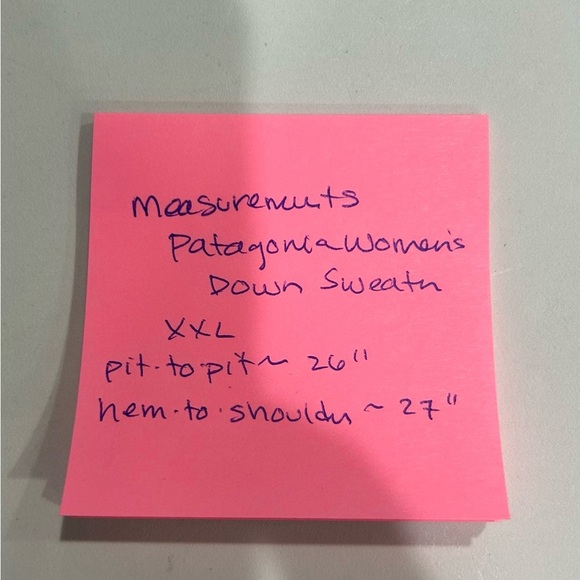 Measurements
Patagonia Women's
Down Sweater
XXL
pit-to-pit ~ 26"
hem-to-shoulder ~ 27"